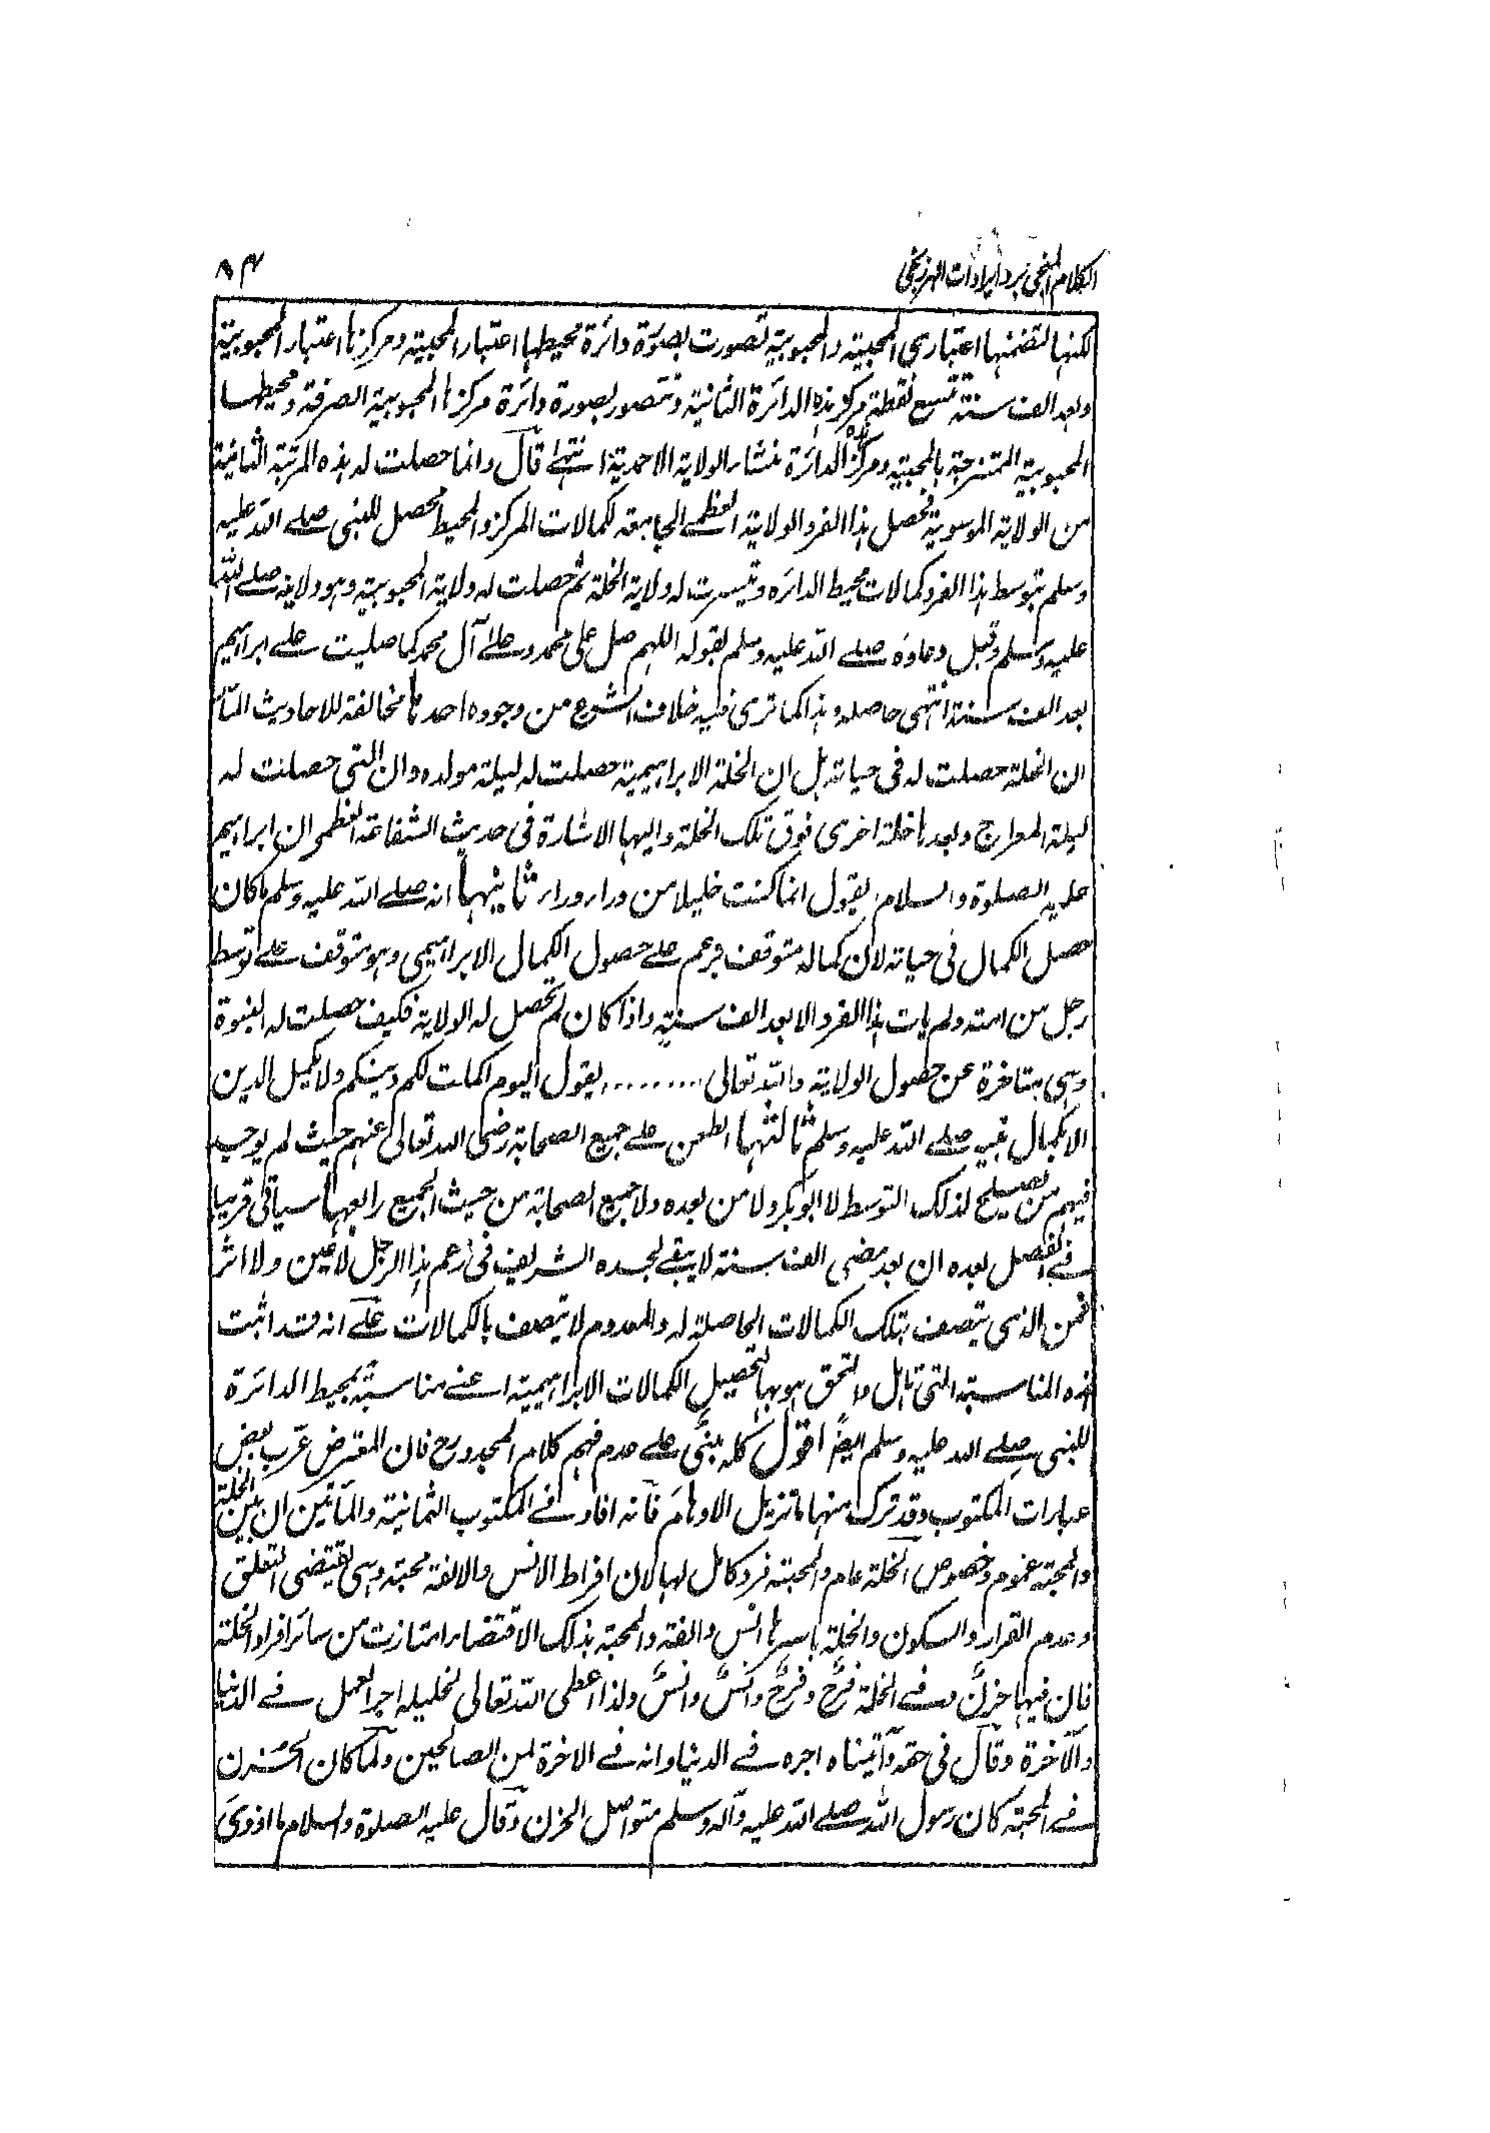 الكلام المنجي برد ايرادات البرزنجي
٨٤
لكنها لتضمنها اعتباري المحبية والمحبوبية تصورت بصورة دائرة محيطها اعتبار المحبية ومركزها اعتبار المحبوبية
وبعد الف سنة تتسع نقطة مركز هذه الدائرة الثانية وتتصور بصورة دائرة مركزها المحبوبية الصرفة ومحيطها
المحبوبية الممتزجة بالمحبية ومركز هذه الدائرة منشاء الولاية الاحمدية انتهے قال وانما حصلت له هذه المرتبة الثانية
من الولاية الموسوية فحصل هذا الفرد الولاية العظمے الجامعة لكمالات المركز والمحيط فحصل للنبي صلے الله عليه
وسلم بتوسط هذا الفرد كمالات محيط الدائره وتيسرت له ولاية الخلة ثم حصلت له ولاية المحبوبية وهو ولايته صلے الله
عليه وسلم وقبل دعاؤه صلے الله عليه وسلم بقوله اللهم صل علی محمد وعلے آل محمد كما صليت علے ابراهيم
بعد الف سنة انتهى حاصله وهذا كما ترى فيه خلاف الشرع من وجوه احدها مخالفة للاحاديث
ان الخلة حصلت له فى حياته بل ان الخلة الابراهيمية حصلت له ليلة مولده وان التى حصلت له
ليلة المعراج وبعدها خلة اخرى فوق تلك الخلة واليها الاشارة فى حديث الشفاعة العظمى ان ابراهيم
عليه الصلوة والسلام يقول انما كنت خليلا من وراء وراء ثانيها انه صلے الله عليه وسلم ما كان
حصل الكمال فى حياته لان كماله متوقف بزعم علے حصول الكمال الابراهيمى وهو متوقف علے توسط
رجل من امته ولم يات هذا الفرد الا بعد الف سنة واذا كان لم تحصل له الولاية فكيف حصلت له النبوة
وهى متاخرة عن حصول الولاية والله تعالى ........ يقول اليوم اكملت لكم دينكم ولا تكميل الدين
الا بكمال نبيه صلے الله عليه وسلم ثالثها الطعن علے جميع الصحابة رضى الله تعالى عنهم حيث لم يوجد
فيهم من يصلح لذلك التوسط لا ابوبكر ولا من بعده ولا جميع الصحابة من حيث الجميع رابعها سياتى قريبا
فے الفصل بعده ان بعد مضى الف سنة لا يبقے لجسده الشريف فى زعم هذا الرجل لا عين ولا اثر
فمن الذى يتصف بتلك الكمالات الحاصلة له والمعدوم لا يتصف بالكمالات علے انه قد اثبت
هذه المناسبة التى تاهل واستحق هو بها لتحصيل الكمالات الابراهيمية اعنے مناسبة بمحيط الدائرة
للنبى صلے الله عليه وسلم ايضًا اقول كله مبنيٌّ علے عدم فهم كلام المجدد رح فان المعترض عرّب بعض
عبارات المكتوب وقد ترك منها ما تزيل الاوهام فانه افاد فے المكتوب الثمانية والمأتين ان بين الخلة
والمحبة عموم وخصوص الخلة عام والمحبة فرد كامل لها لان افراط الانس والالفة محبة وهى تقتضى التعلق
وعدم القرار والسكون والخلة باسرها انس والفة والمحبة بذلك الاقتضاء امتازت من سائر افراد الخلة
فان فيها حزنٌ وفے الخلة فرحٌ وفرحٌ وانسٌ وانسٌ ولذا اعطى الله تعالى لخليله اجر العمل فے الدنيا
والآخرة وقال فى حقه وآتيناه اجره فے الدنيا وانه فے الاخرة لمن الصالحين ولما كان الحزن
فے المحبة كان رسول الله صلے الله عليه وآله وسلم متواصل الحزن وقال عليه الصلوة والسلام ما اوذى